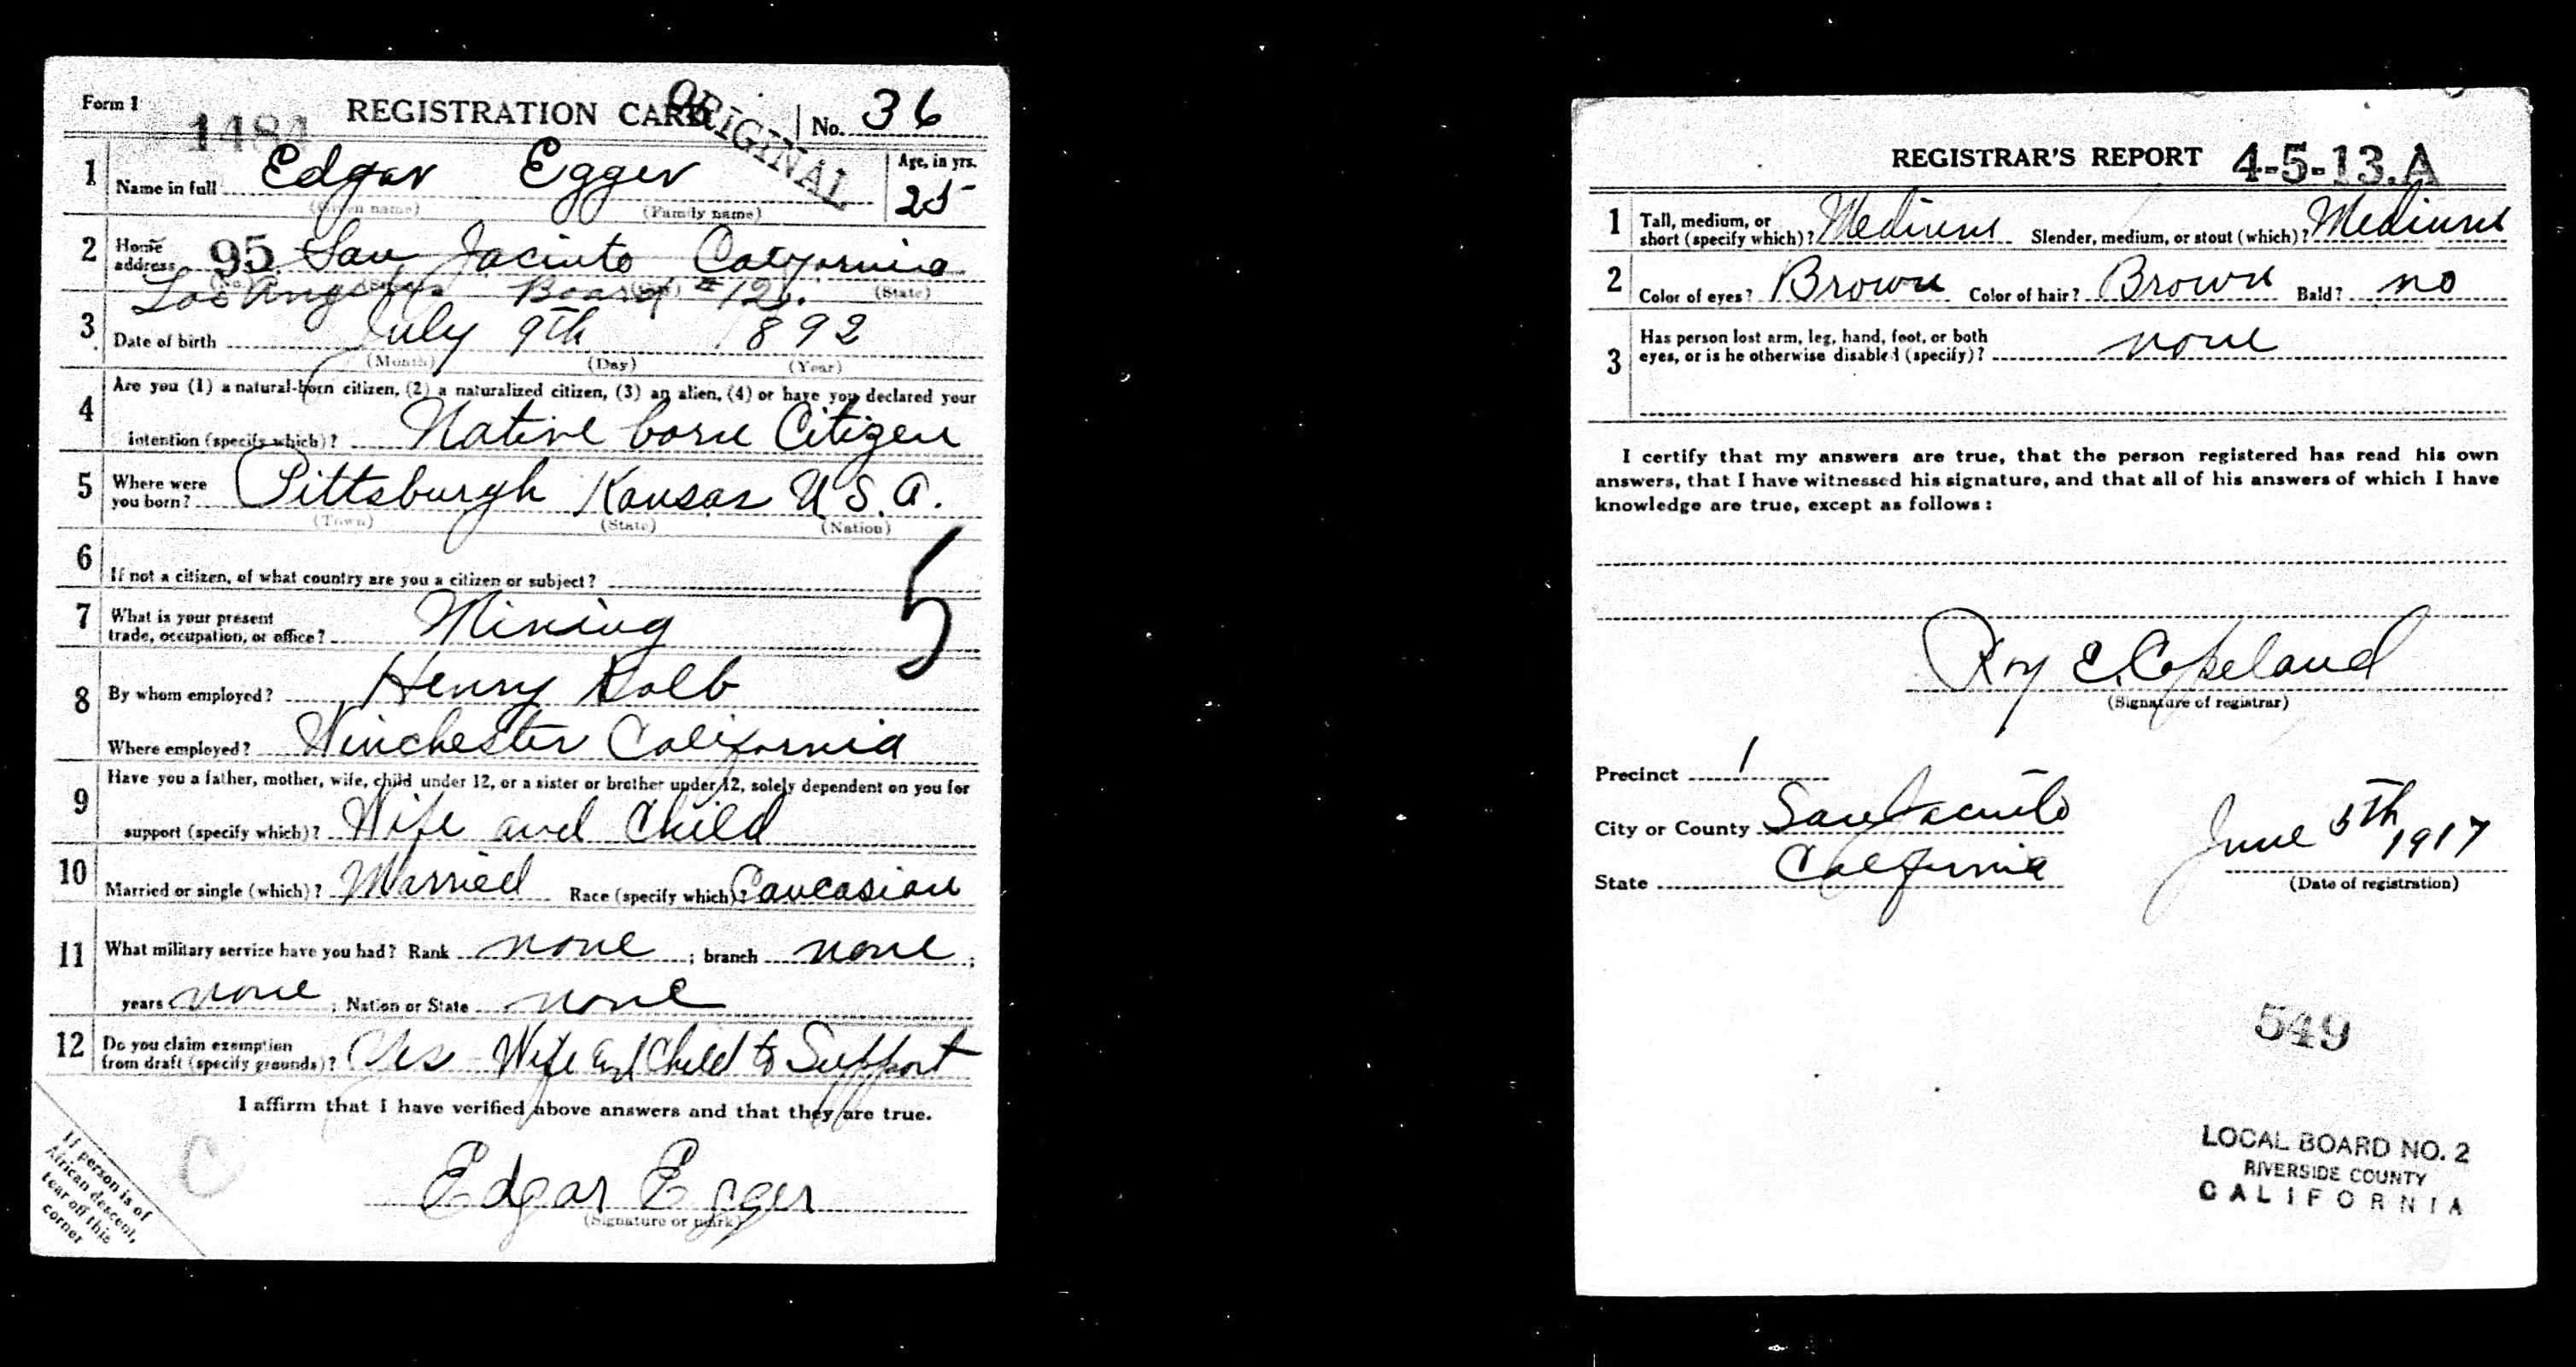 Form 1
1484
REGISTRATION CARD
ORIGINAL
No. 36
1 Name in full Edgar Egger Age, in yrs. 25
(Given name) (Family name)
2 Home address 95 San Jacinto California
(No.) (State)
Los Angeles Board #12.
3 Date of birth July 9th 1892
(Month) (Day) (Year)
4 Are you (1) a natural-born citizen, (2) a naturalized citizen, (3) an alien, (4) or have you declared your
intention (specify which)? Native born Citizen
5 Where were you born? Pittsburgh Kansas U.S.A.
(Town) (State) (Nation)
6 If not a citizen, of what country are you a citizen or subject?
5
7 What is your present
trade, occupation, or office? Mining
8 By whom employed? Henry Kolb
Where employed? Winchester California
9 Have you a father, mother, wife, child under 12, or a sister or brother under 12, solely dependent on you for
support (specify which)? Wife and Child
10 Married or single (which)? Married Race (specify which)? Caucasian
11 What military service have you had? Rank none ; branch none ;
years none ; Nation or State none
12 Do you claim exemption
from draft (specify grounds)? Yes Wife and Child to Support
I affirm that I have verified above answers and that they are true.
C
Edgar Egger
(Signature or mark)
If person is of
African descent,
tear off this
corner
REGISTRAR'S REPORT 4-5-13.A
1 Tall, medium, or
short (specify which)? Medium Slender, medium, or stout (which)? Medium
2 Color of eyes? Brown Color of hair? Brown Bald? no
3 Has person lost arm, leg, hand, foot, or both
eyes, or is he otherwise disabled (specify)? none
I certify that my answers are true, that the person registered has read his own
answers, that I have witnessed his signature, and that all of his answers of which I have
knowledge are true, except as follows:
Roy E. Copeland
(Signature of registrar)
Precinct 1
City or County San Jacinto
State California
June 5th 1917
(Date of registration)
549
LOCAL BOARD NO. 2
RIVERSIDE COUNTY
CALIFORNIA